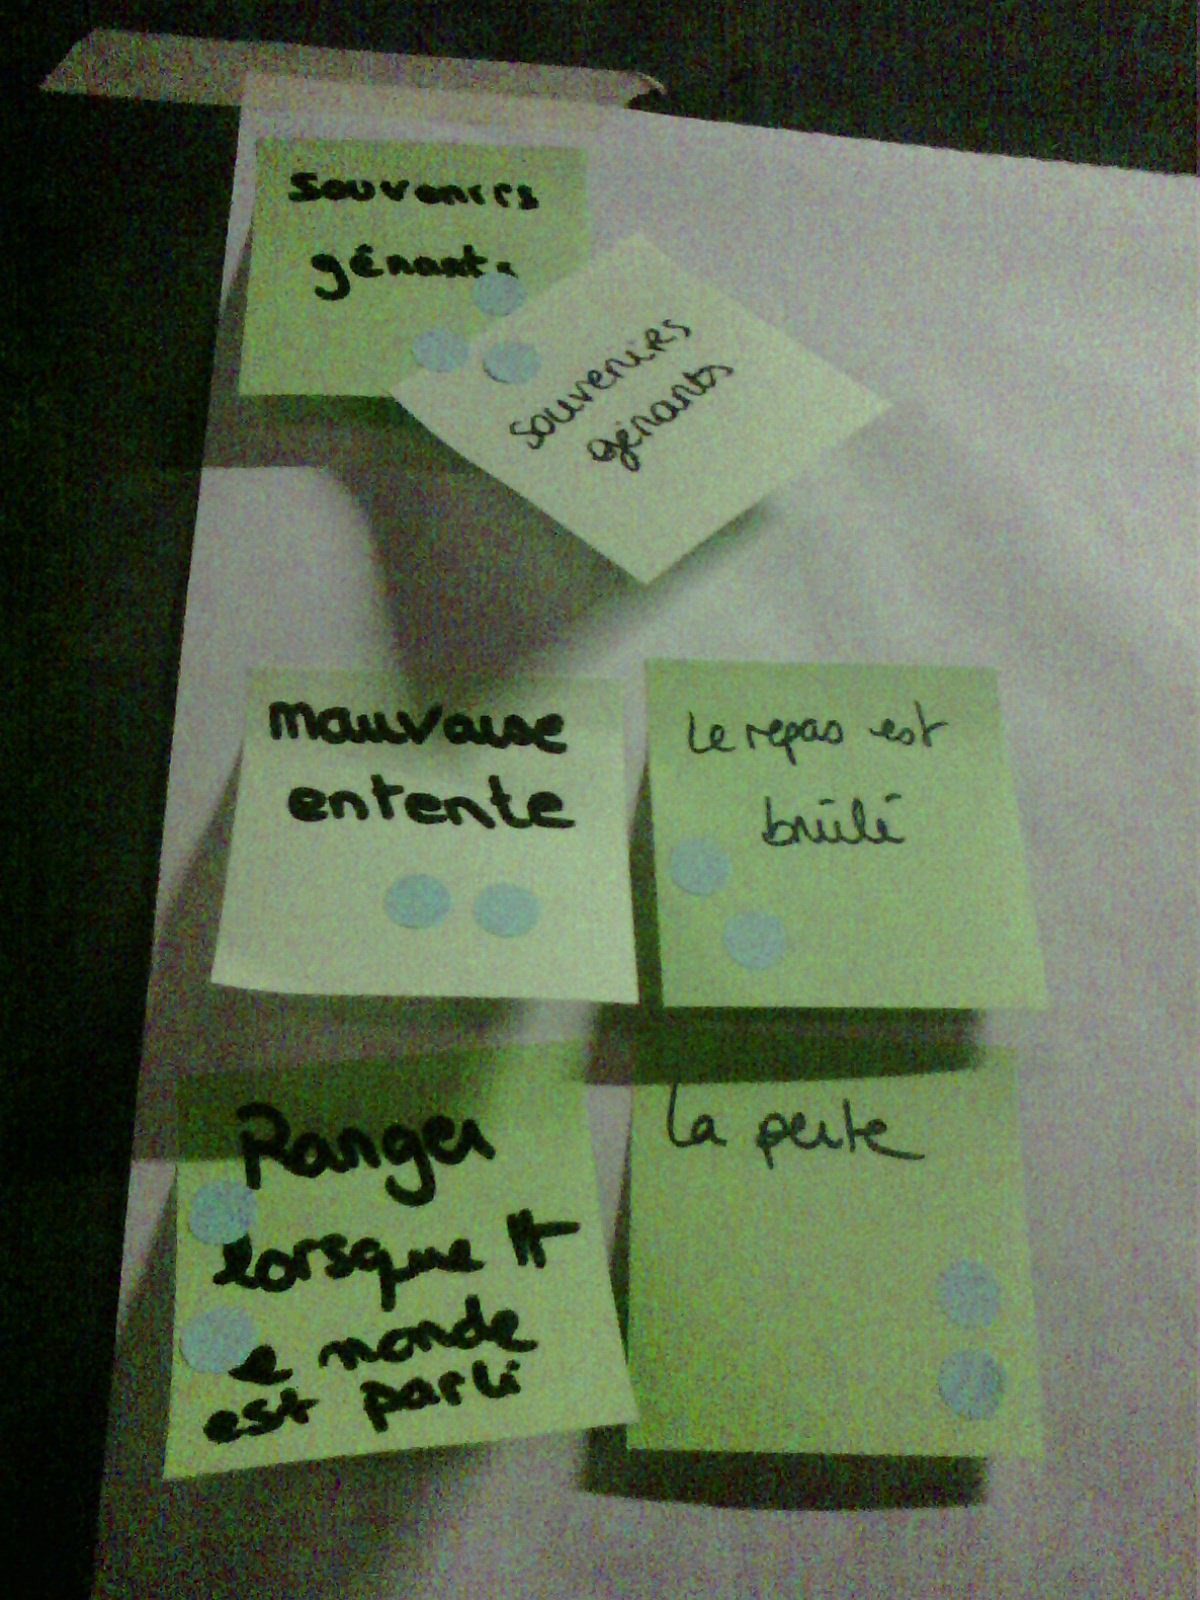 Souvenirs
gênants
souvenirs
gênants
mauvaise
entente
Le repas est
brûlé
Ranger
lorsque tt
le monde
est parti
la perte